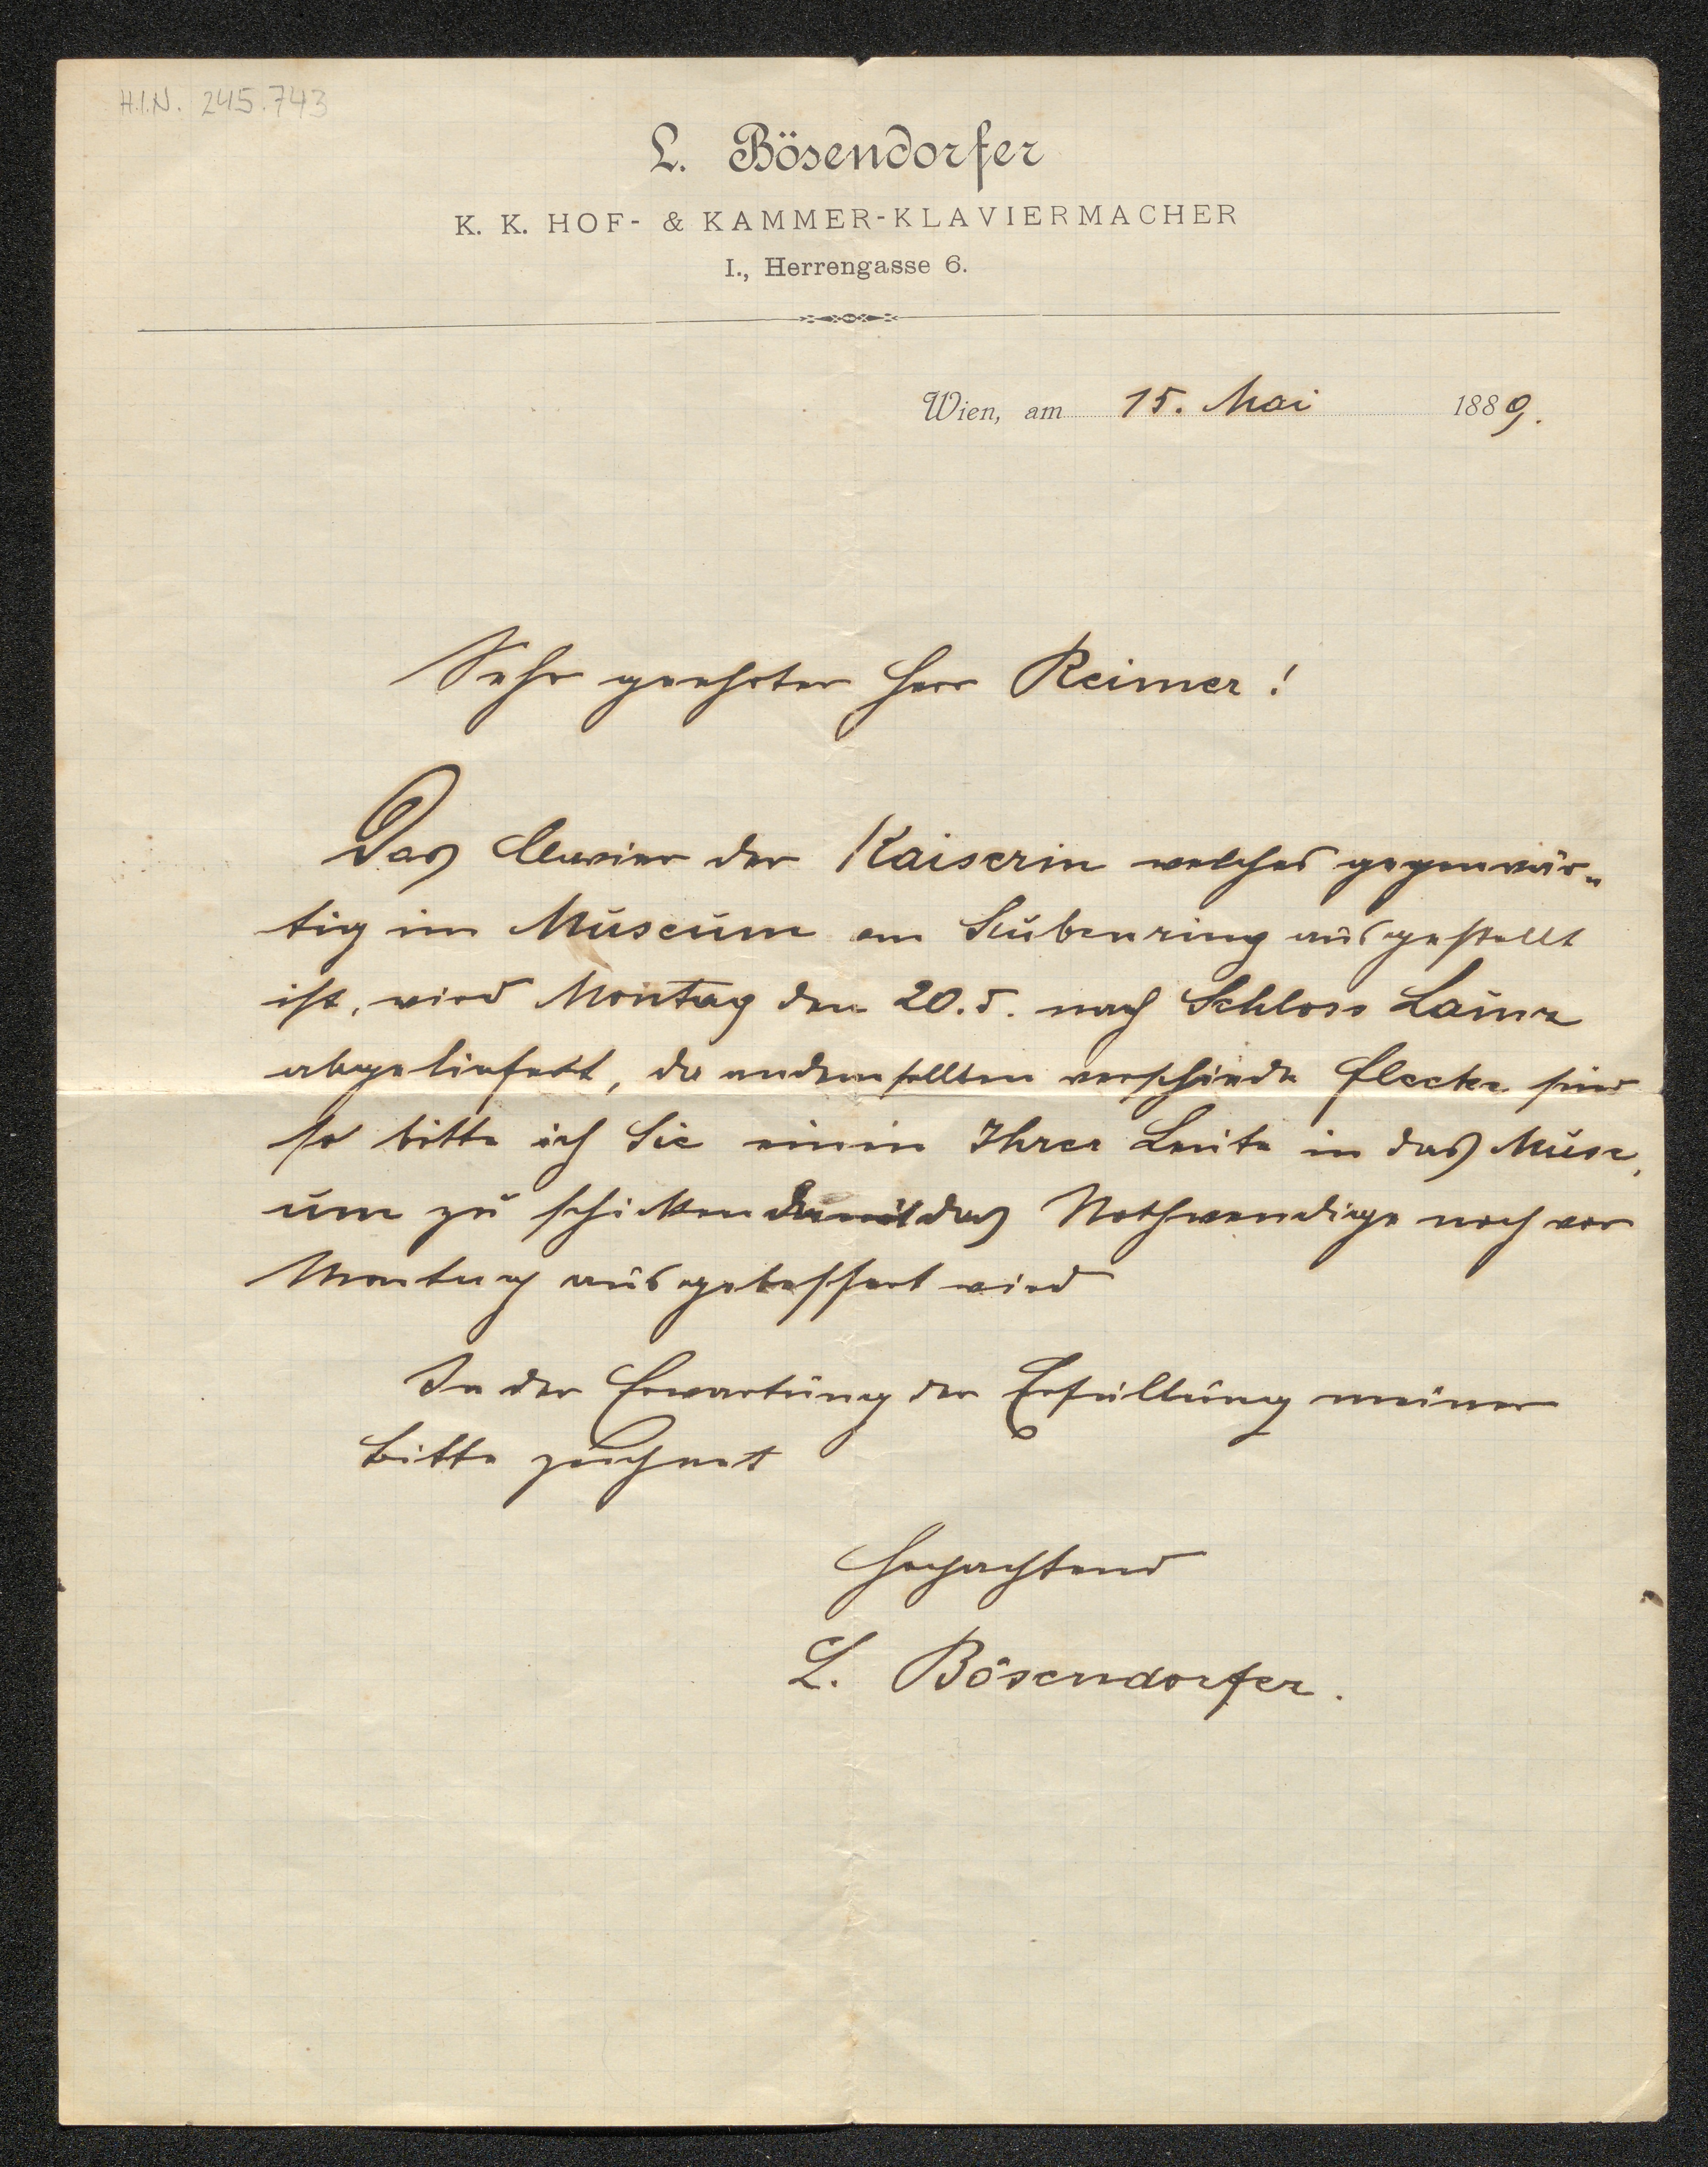 H.I.N. 245.743
L. Bösendorfer
K. K. HOF- & KAMMER-KLAVIERMACHER
I., Herrengasse 6.
Wien, am 15. Mai 1889.
Sehr geehrter Herr Reimer!
Das Clavier der Kaiserin welches gegenwär-
tig im Museum am Stubenring ausgestellt
ist, wird Montag den 20. d. nach Schloss Lainz
abgeliefert, da an demselben verschiede Flecke sind
so bitte ich Sie einen Ihrer Leute in das Muse-
um zu schicken damit das Nothwendige noch vor
Montag ausgebessert wird
In der Erwartung der Erfüllung meiner
Bitte zeichnet
Hochachtend
L. Bösendorfer.